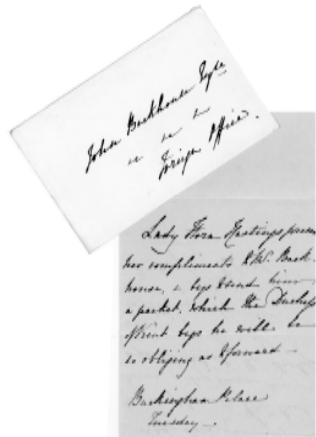 John Backhouse Esqre
&c &c &c
Foreign Office.
Lady Flora Hastings presents
her compliments to Mr. Back-
house, & begs to send him
a packet, which the Duchess
of Kent begs he will be
so obliging as to forward —
Buckingham Palace
Tuesday —.